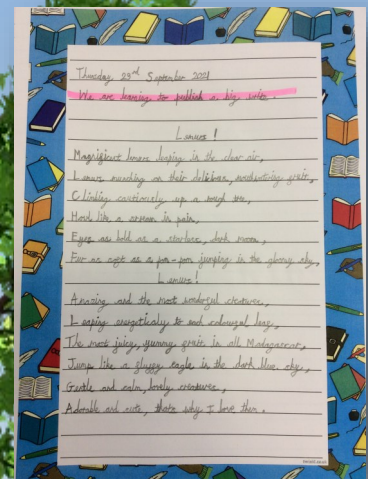 Thursday, 23rd September 2021
We are learning to publish a big write.
Lemurs!
Magnificent lemurs leaping in the clear air,
Lemurs munching on their delicious, mouthwatering fruit,
Climbing cautiously up a rough tree,
Howl like a scream in pain,
Eyes as bold as a starless, dark moon,
Fur as soft as a pom-pom jumping in the gloomy sky,
Lemurs!
Amazing and the most wonderful creatures,
Leaping energetically to each colossal leap,
The most juicy, yummy fruits in all Madagascar,
Jump like a fluffy eagle in the dark blue sky,
Gentle and calm, lovely creatures,
Adorable and cute, thats why I love them.